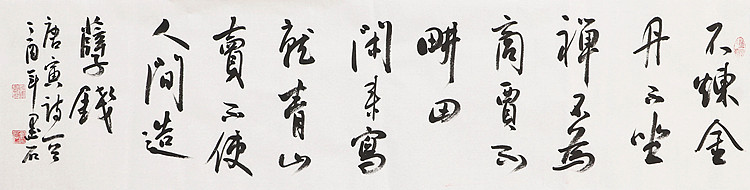 不煉金
丹不坐
禪不為
商賈不
畊田
閑來寫
就青山
賣不使
人間造
孽錢
唐寅詩一首
丁酉年墨石